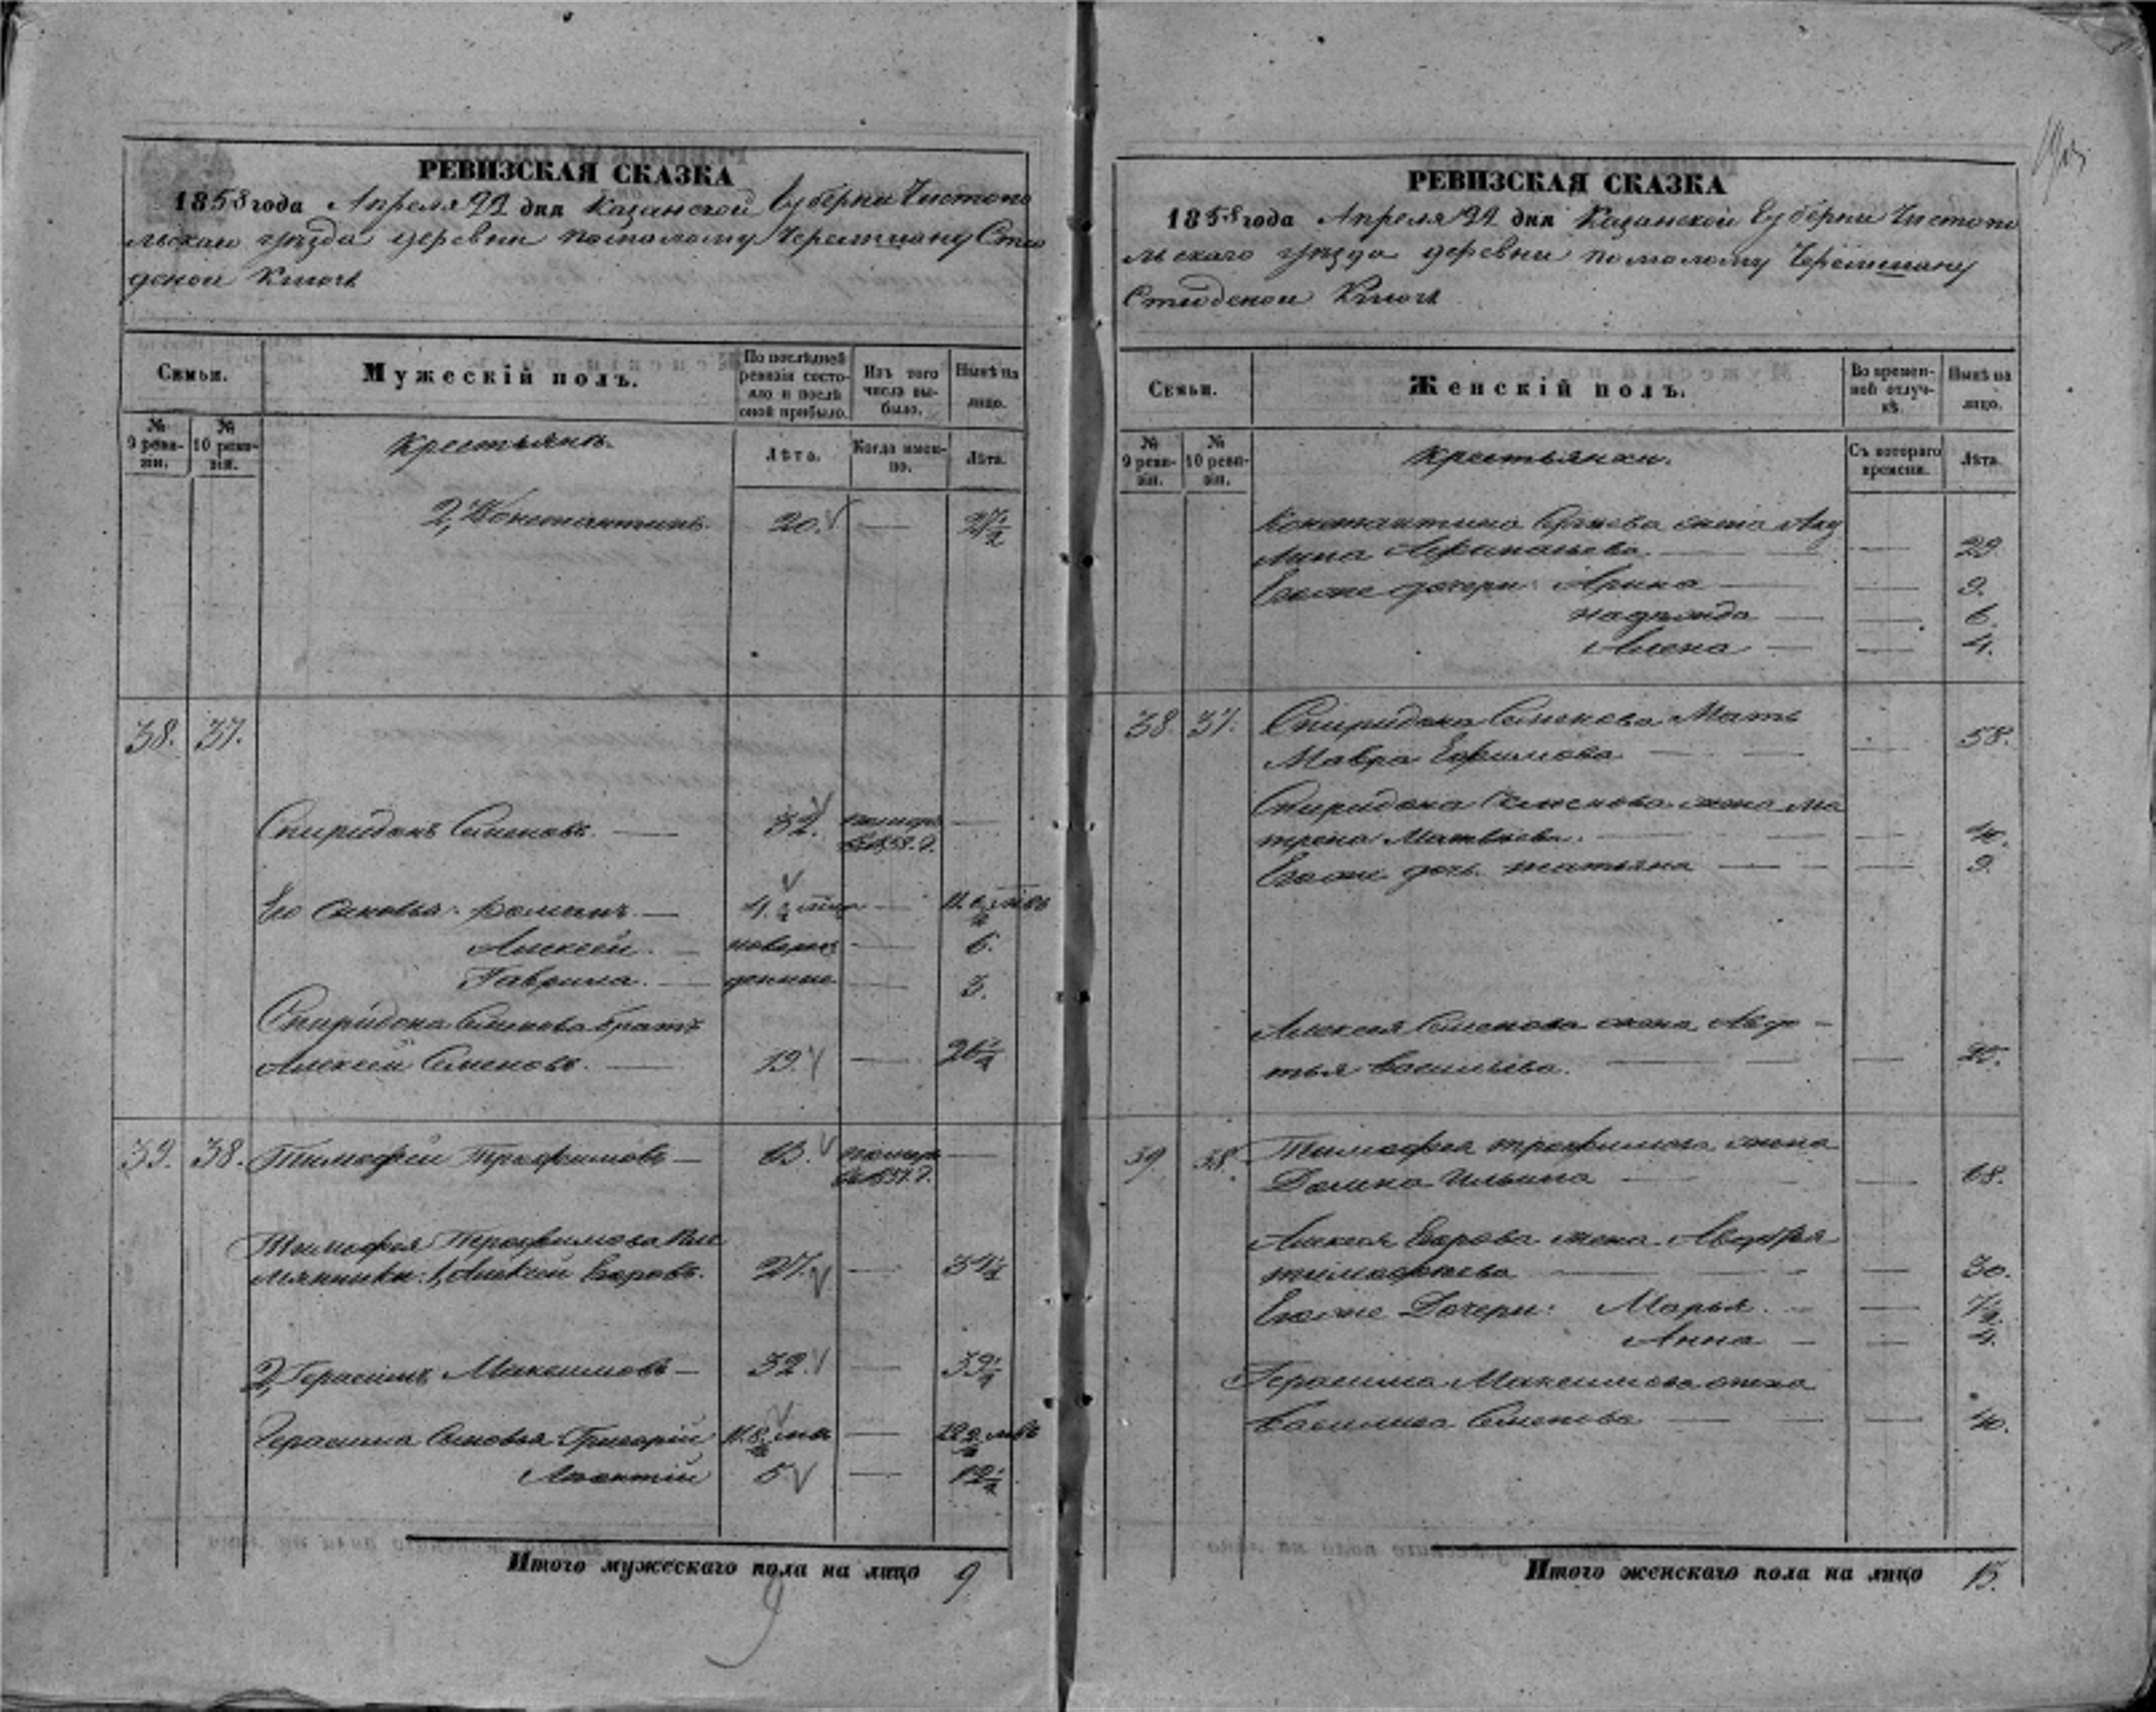 РЕВИЗСКАЯ СКАЗКА
1858 года Апреля 22 дня Казанской Губерни Чистопо
льскаго уѣзда деревни помалому Черемшану Сту
деной Ключь
Семьи.
Мужескій полъ.
По послѣдней ревизіи состояло и послѣ оной прибыло.
Изъ того числа выбыло.
Нынѣ на лицо.
№ 9 ревизіи.
№ 10 ревизіи.
Крестьянъ.
Лѣта.
Когда именно.
Лѣта.
2, Константинъ. 20. — 27½
38. 37.
Спиридонъ Семеновъ. — 32. померъ —
в 1858. г.
Его Сыновья: Романъ. — 4. — 11.
Алексей. — новорож — 6.
Гаврила. — денные — 3.
Спиридона Семенова братъ
Алексей Семеновъ. — 19. — 26½
39. 38. Тимофей Трофимовъ — 63. померъ —
Тимофея Трофимова Пле
мянники: 1, Алексей Егоровъ. 27. — 34½
2, Герасимъ Максимовъ — 32. — 39½
Герасима Сыновья Григорій —
Леонтій 5 — 12½
Итого мужескаго пола на лицо 9
9
РЕВИЗСКАЯ СКАЗКА
1858 года Апреля 22 дня Казанской Губерни Чистопо
льскаго уѣзда деревни помалому Черемшану
Студеной Ключь
Семьи.
Женскій полъ.
Во временной отлучкѣ.
Нынѣ на лицо.
№ 9 ревизіи.
№ 10 ревизіи.
Крестьянки.
Съ котораго времени.
Лѣта.
Константина жена Аку
лина — — 29.
Егоже дочери: Арина — — 9.
Надѣжда — — 6.
Алена — — 4.
38. 37. Спиридона Семенова Мать
Мавра Ефимова — — 58.
Спиридона Семенова жена Ма
трена Матвѣева. — — 40.
Егоже дочь Татьяна — — 9.
Алексея Семенова жена Авдо-
тья Васильева. — —
39 38. Тимофея Трофимова жена
Домна Ильина — — 68.
Алексея Егорова жена
Тимофеева — — 30.
Егоже Дочери: Марья. — —
Анна — — 4.
Герасима Максимова жена
Василиса Семенова — — 40.
Итого женскаго пола на лицо 15.